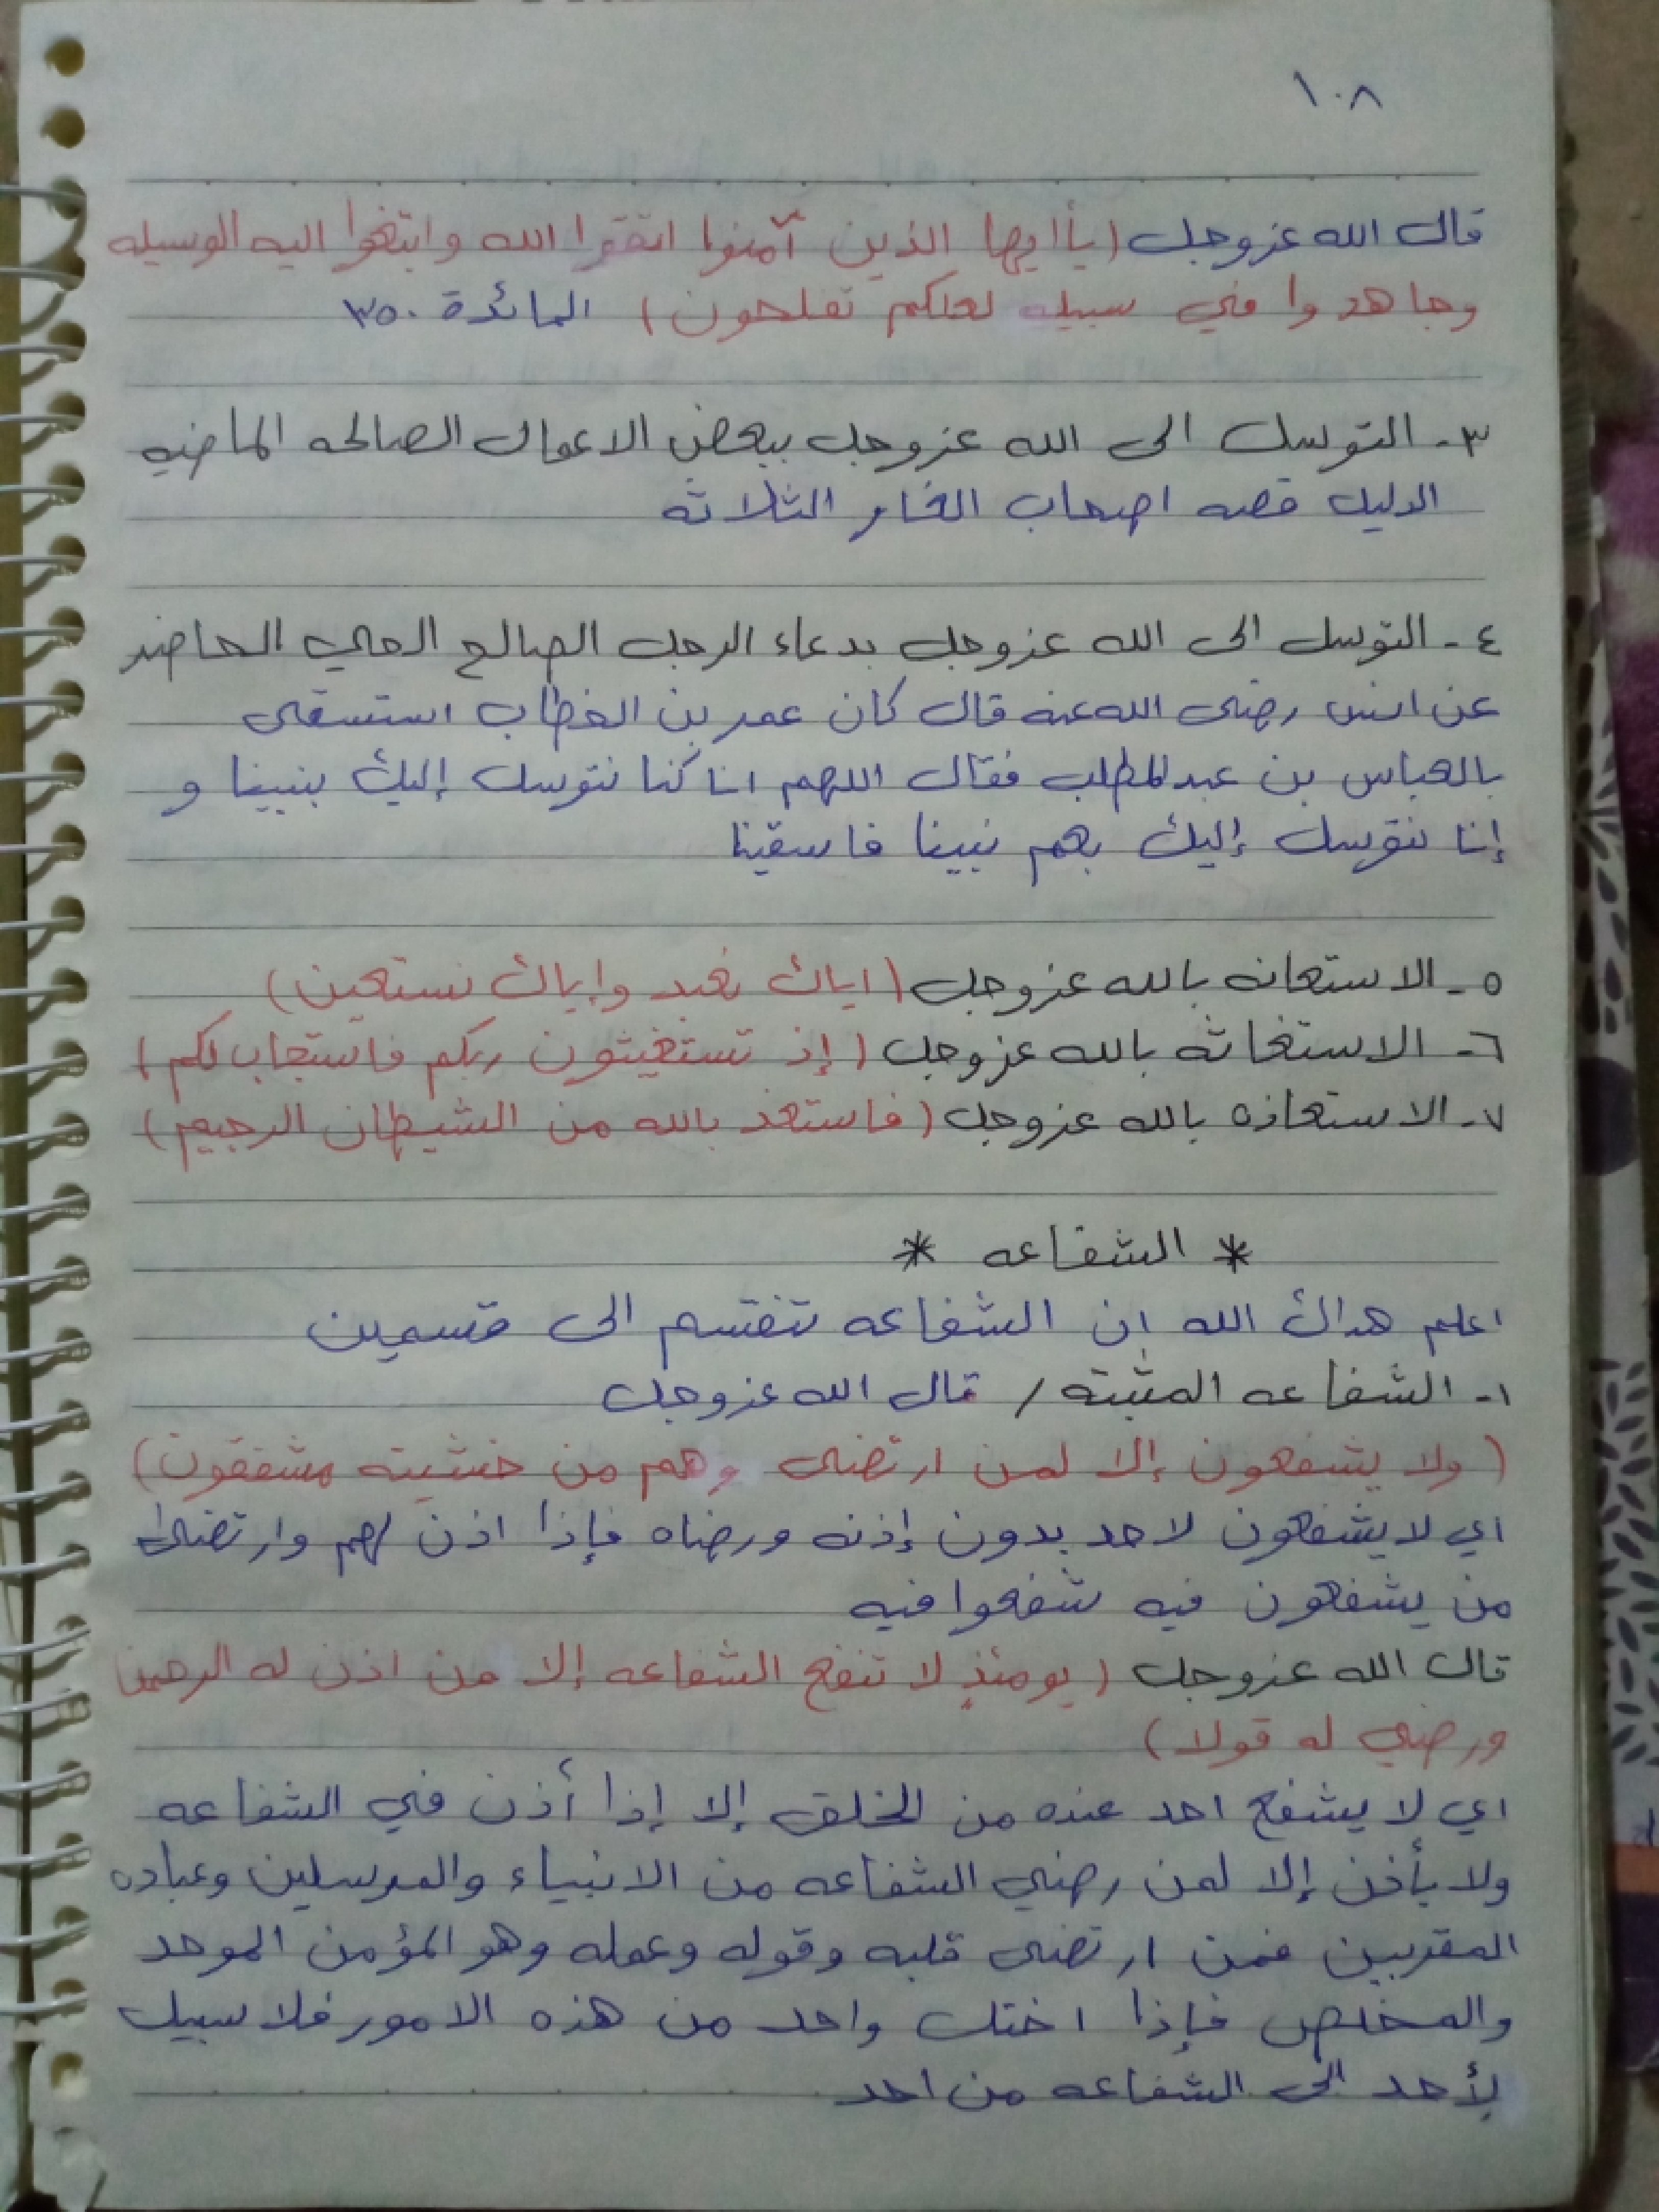 ١٠٨
قال الله عز وجل (يأايها الذين آمنوا اتقوا الله وابتغوا اليه الوسيله
وجاهدوا في سبيله لعلكم تفلحون) المائدة ٣٥٠
٣- التوسل الى الله عز وجل ببعض الاعمال الصالحه الماضيه
الدليل قصه اصحاب الغار الثلاثه
٤- التوسل الى الله عز وجل بدعاء الرجل الصالح الحي الحاضر
عن انس رضى الله عنه قال كان عمر بن الخطاب استسقى
بالعباس بن عبدالمطلب فقال اللهم انا كنا نتوسل إليك بنبينا و
إنا نتوسل إليك بعم نبينا فاسقينا
٥- الاستعانه بالله عز وجل (اياك نعبد وإياك نستعين)
٦- الاستغاثه بالله عز وجل (إذ تستغيثون ربكم فاستجاب لكم)
٧- الاستعاذه بالله عز وجل (فاستعذ بالله من الشيطان الرجيم)
* الشفاعه *
اعلم هداك الله ان الشفاعه تنقسم الى قسمين
١- الشفاعه المثبته / قال الله عز وجل
(ولا يشفعون إلا لمن ارتضى وهم من خشيته مشفقون)
اي لا يشفعون لاحد بدون إذنه ورضاه فإذا اذن لهم وارتضى
من يشفعون فيه شفعوا فيه
قال الله عز وجل (يومئذٍ لا تنفع الشفاعه إلا من اذن له الرحمن
ورضي له قولا)
اي لا يشفع احد عنده من الخلق إلا إذا أذن في الشفاعه
ولا يأذن إلا لمن رضي الشفاعه من الانبياء والمرسلين وعباده
المقربين فمن ارتضى قلبه وقوله وعمله وهو المؤمن الموحد
والمخلص فإذا اختل واحد من هذه الامور فلا سبيل
لأحد الى الشفاعه من احد